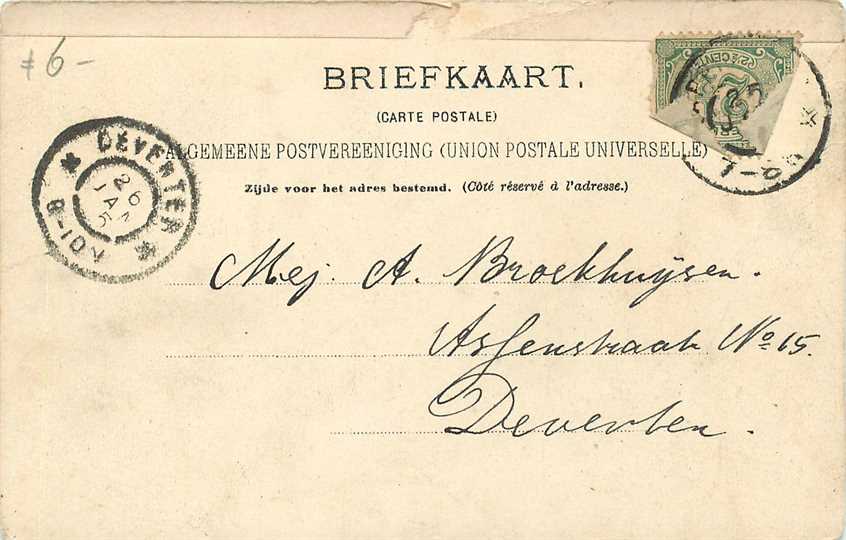 #6-
BRIEFKAART.
(CARTE POSTALE)
ALGEMEENE POSTVEREENIGING (UNION POSTALE UNIVERSELLE)
Zijde voor het adres bestemd. (Côté réservé à l'adresse.)
DEVENTER
26
8-10V
7-8
2½ CENT
Mej. A. Broekhuijsen.
Assenstraat No 15.
Deventer.